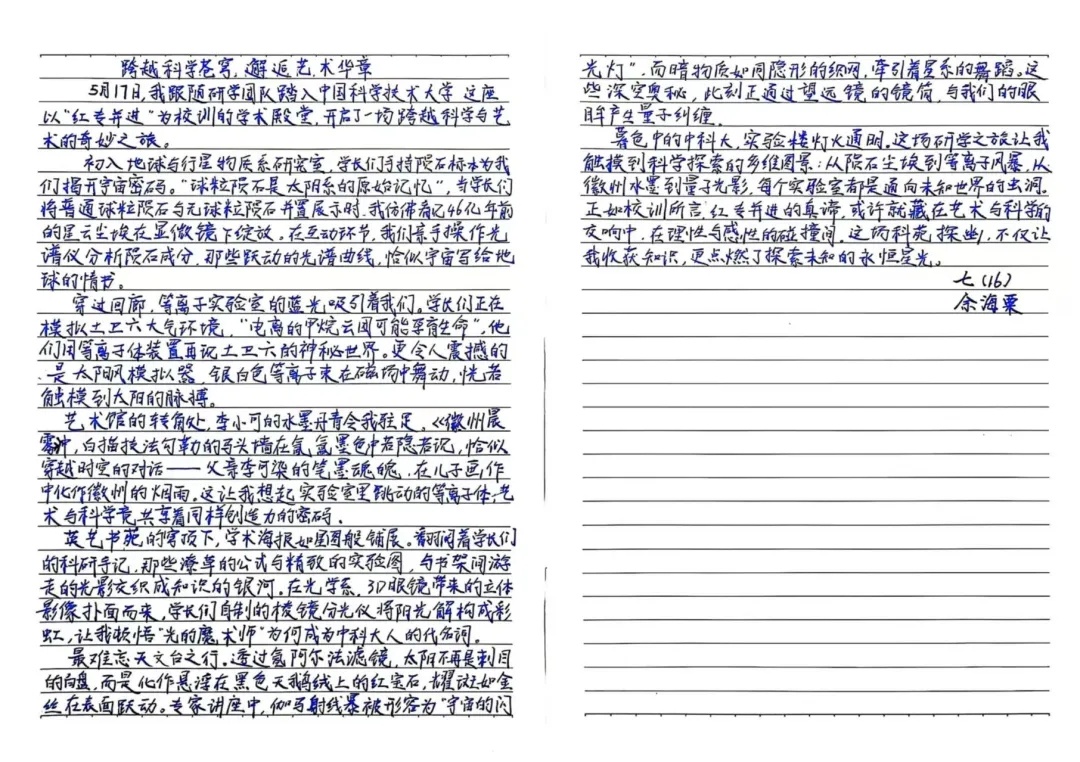 跨越科学苍穹,邂逅艺术华章
5月17日,我跟随研学团队踏入中国科学技术大学 这座
以“红专并进”为校训的学术殿堂,开启了一场跨越科学与艺
术的奇妙之旅。
初入地球与行星物质系研究室,学长们手持陨石标本为我
们揭开宇宙密码。“球粒陨石是太阳系的原始记忆”,当学长们
将普通球粒陨石与无球粒陨石并置展示时,我仿佛看见46亿年前
的星云尘埃在显微镜下绽放。在互动环节,我们亲手操作光
谱仪分析陨石成分,那些跃动的光谱曲线,恰似宇宙写给地
球的情书。
穿过回廊,等离子实验室的蓝光吸引着我们。学长们正在
模拟土卫六大气环境,“电离的甲烷云团可能孕育生命”,他
们用等离子体装置再现土卫六的神秘世界。更令人震撼的
是太阳风模拟器,银白色等离子束在磁场中舞动,恍若
触摸到太阳的脉搏。
艺术馆的转角处,李小可的水墨丹青令我驻足。《徽州晨
雾》中,白描技法勾勒的马头墙在氤氲墨色中若隐若现,恰似
穿越时空的对话——父亲李可染的笔墨魂魄,在儿子画作
中化作徽州的烟雨。这让我想起实验室里跳动的等离子体,艺
术与科学竟共享着同样创造力的密码。
英艺书苑的穹顶下,学术海报如星图般铺展。翻阅着学长们
的科研手记,那些潦草的公式与精致的实验图,与书架间游
走的光影交织成知识的银河。在光学系,3D眼镜带来的立体
影像扑面而来,学长们自制的棱镜分光仪将阳光解构成彩
虹,让我顿悟“光的魔术师”为何成为中科大人的代名词。
最难忘天文台之行。透过氢阿尔法滤镜,太阳不再是刺目
的白盘,而是化作悬浮在黑色天鹅绒上的红宝石,耀斑如金
丝在表面跃动。专家讲座中,伽马射线暴被形容为“宇宙的闪
光灯”,而暗物质如同隐形的织网,牵引着星系的舞蹈。这
些深空奥秘,此刻正通过望远镜的镜筒,与我们的眼
眸产生量子纠缠。
暮色中的中科大,实验楼灯火通明。这场研学之旅让我
触摸到科学探索的多维图景:从陨石尘埃到等离子风暴,从
徽州水墨到量子光影,每个实验室都是通向未知世界的虫洞。
正如校训所言,红专并进的真谛,或许就藏在艺术与科学的
交响中,在理性与感性的碰撞间。这场科苑探幽,不仅让
我收获知识,更点燃了探索未知的永恒星光。
七(16)
余海粟